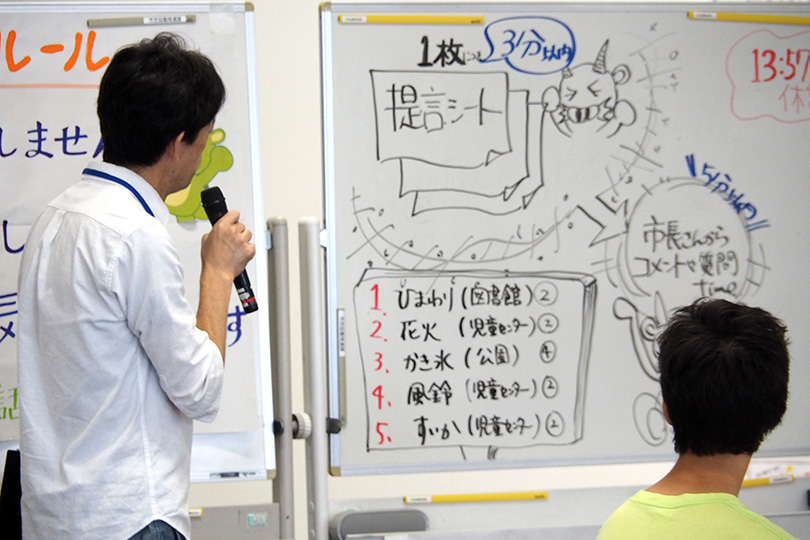 ルール
しません
し
す
1枚につき3分以内
提言シート
13:57
休
5分以内
市長さんから
コメントや質問
time
1. ひまわり(図書館)②
2. 花火(児童センター)②
3. かき氷(公園)④
4. 風鈴(児童センター)②
5. すいか(児童センター)②